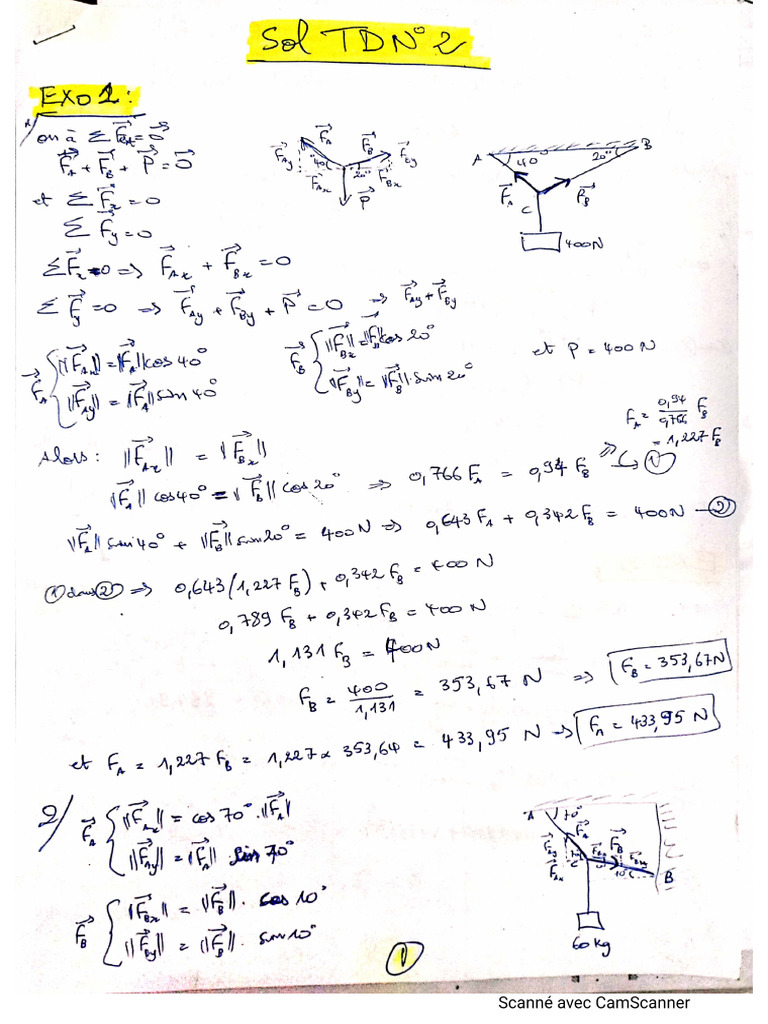 Sol TD N°2
EXO 1:
1/ on à Σ F⃗ex = 0⃗
F⃗A + F⃗B + P⃗ = 0⃗
et Σ F⃗x = 0
Σ F⃗y = 0
F⃗A F⃗B F⃗Ay F⃗By 40° 20° F⃗Ax F⃗Bx P⃗
A B 40° 20° F⃗A F⃗B C 400N
Σ F⃗x = 0 => F⃗Ax + F⃗Bx = 0
Σ F⃗y = 0 => F⃗Ay + F⃗By + P⃗ = 0 => F⃗Ay + F⃗By
F⃗A { ||F⃗Ax|| = ||F⃗A|| cos 40°
||F⃗Ay|| = ||F⃗A|| sin 40°
F⃗B { ||F⃗Bx|| = ||F⃗B|| cos 20°
||F⃗By|| = ||F⃗B|| sin 20°
et P = 400N
Alors: ||F⃗Ax|| = ||F⃗Bx||
FA = 0,94/0,766 FB
= 1,227 FB
||F⃗A|| cos 40° = ||F⃗B|| cos 20° => 0,766 FA = 0,94 FB => ①
||F⃗A|| sin 40° + ||F⃗B|| sin 20° = 400N => 0,643 FA + 0,342 FB = 400N — ②
① dans ② => 0,643 (1,227 FB) + 0,342 FB = 400 N
0,789 FB + 0,342 FB = 400 N
1,131 FB = 400N
FB = 400/1,131 = 353,67 N => FB = 353,67 N
et FA = 1,227 FB = 1,227 x 353,64 = 433,95 N => FA = 433,95 N
2/ F⃗A { ||F⃗Ax|| = cos 70° . ||F⃗A||
||F⃗Ay|| = ||F⃗A|| sin 70°
F⃗B { ||F⃗Bx|| = ||F⃗B|| . cos 10°
||F⃗By|| = ||F⃗B|| . sin 10°
A 70° F⃗A F⃗B F⃗Ax C 10° B
60 kg
①
Scanné avec CamScanner